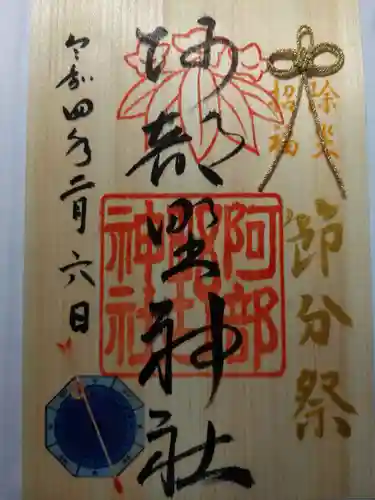 除災
招福
節分祭
阿部野神社
阿部野神社
令和四年二月六日